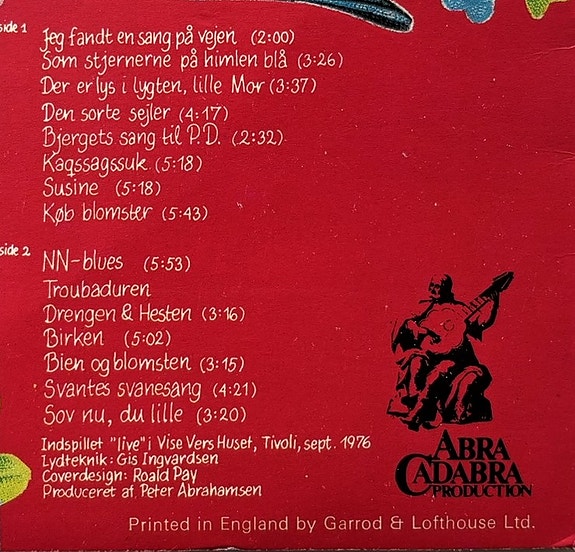 side 1
Jeg fandt en sang på vejen (2:00)
Som stjernerne på himlen blå (3:26)
Der er lys i lygten, lille Mor (3:37)
Den sorte sejler (4:17)
Bjergets sang til P.D. (2:32)
Kaqssagssuk (5:18)
Susine (5:18)
Køb blomster (5:43)
side 2
NN-blues (5:53)
Troubaduren
Drengen & Hesten (3:16)
Birken (5:02)
Bien og blomsten (3:15)
Svantes svanesang (4:21)
Sov nu, du lille (3:20)
Indspillet "live" i Vise Vers Huset, Tivoli, sept. 1976
Lydteknik: Gis Ingvardsen
Coverdesign: Roald Pay
Produceret af Peter Abrahamsen
ABRA
CADABRA
PRODUCTION
Printed in England by Garrod & Lofthouse Ltd.